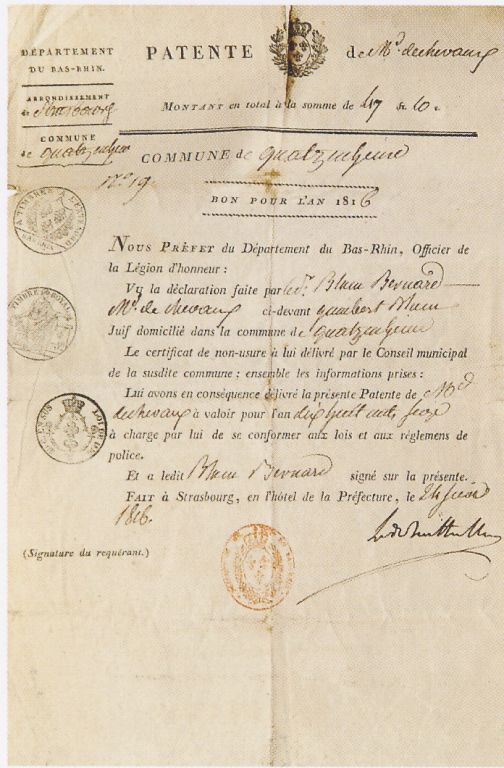 DÉPARTEMENT
DU BAS-RHIN.
ARRONDISSEMENT
de Strasbourg
COMMUNE
de quatzenheim
PATENTE de Md. de chevaux
MONTANT en total à la somme de 47 fr. 10 c.
COMMUNE de quatzenheim
N.o 19
BON POUR L'AN 1816
NOUS PRÉFET du Département du Bas-Rhin, Officier de
la Légion d'honneur :
Vu la déclaration faite par le Sr. Blum Bernard
Md. de chevaux ci-devant Blum
Juif domicilié dans la commune de quatzenheim
Le certificat de non-usure à lui délivré par le Conseil municipal
de la susdite commune ; ensemble les informations prises :
Lui avons en conséquence délivré la présente Patente de Md
de chevaux à valoir pour l'an dix huit cent seize
à charge par lui de se conformer aux lois et aux règlemens de
police.
Et a ledit Blum Bernard signé sur la présente.
FAIT à Strasbourg, en l'hôtel de la Préfecture, le 24
1816.
(Signature du requérant.)